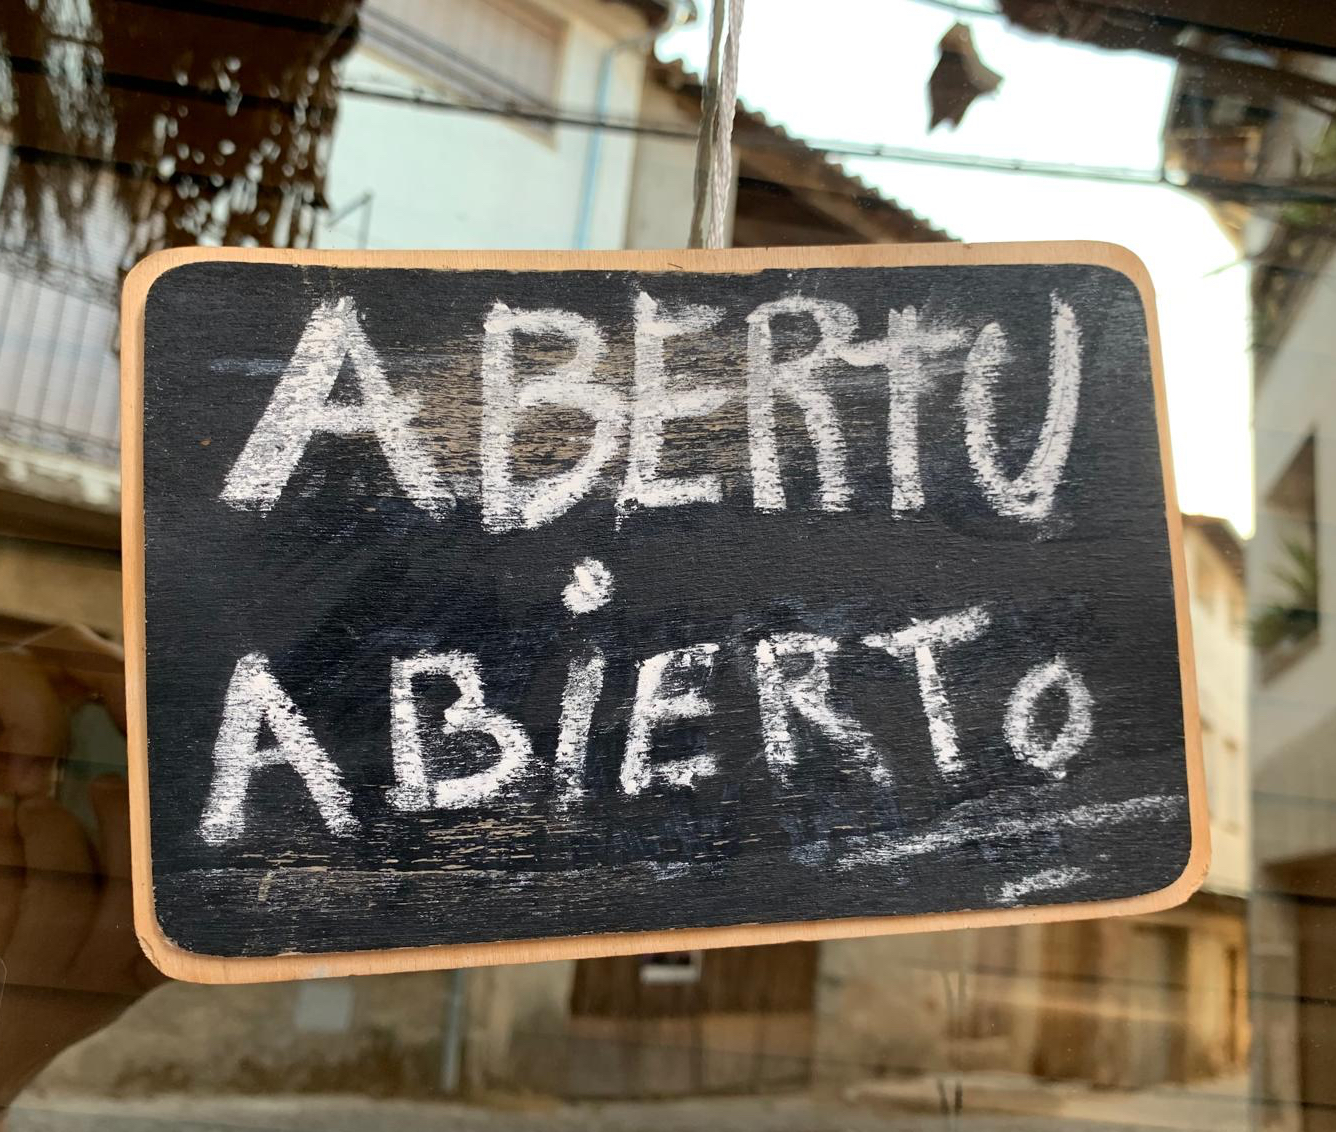 ABERtU
ABiERTo